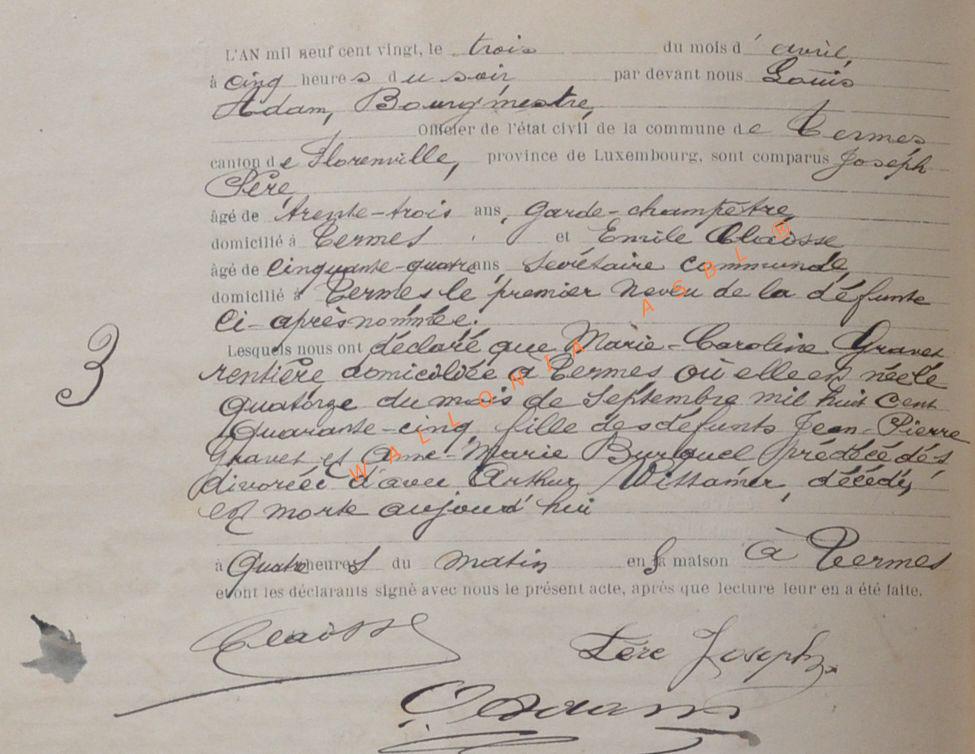 L'AN mil neuf cent vingt, le trois du mois d' avril,
à cinq heures du soir par devant nous Louis
Adam, Bourgmestre,
Officier de l'état civil de la commune de Termes
canton de Florenville, province de Luxembourg, sont comparus Joseph
Père,
âgé de trente-trois ans, garde-champêtre,
domicilié à Termes et Emile Claisse
âgé de cinquante-quatre ans Secrétaire communal,
domicilié à Termes le premier neveu de la défunte
ci-après nommée.
Lesquels nous ont déclaré que Marie-Caroline Gravet
rentière domiciliée à Termes où elle est née le
quatorze du mois de Septembre mil huit cent
quarante-cinq fille des défunts Jean-Pierre
Gravet et Anne-Marie Burquel prédécédés
divorcée d'avec Arthur Wittamer, décédé,
est morte aujourd'hui
à quatre heures du matin en sa maison à Termes
et ont les déclarants signé avec nous le présent acte, après que lecture leur en a été faite.
3
WALLONIA ASBL ®
Claisse
Père Joseph